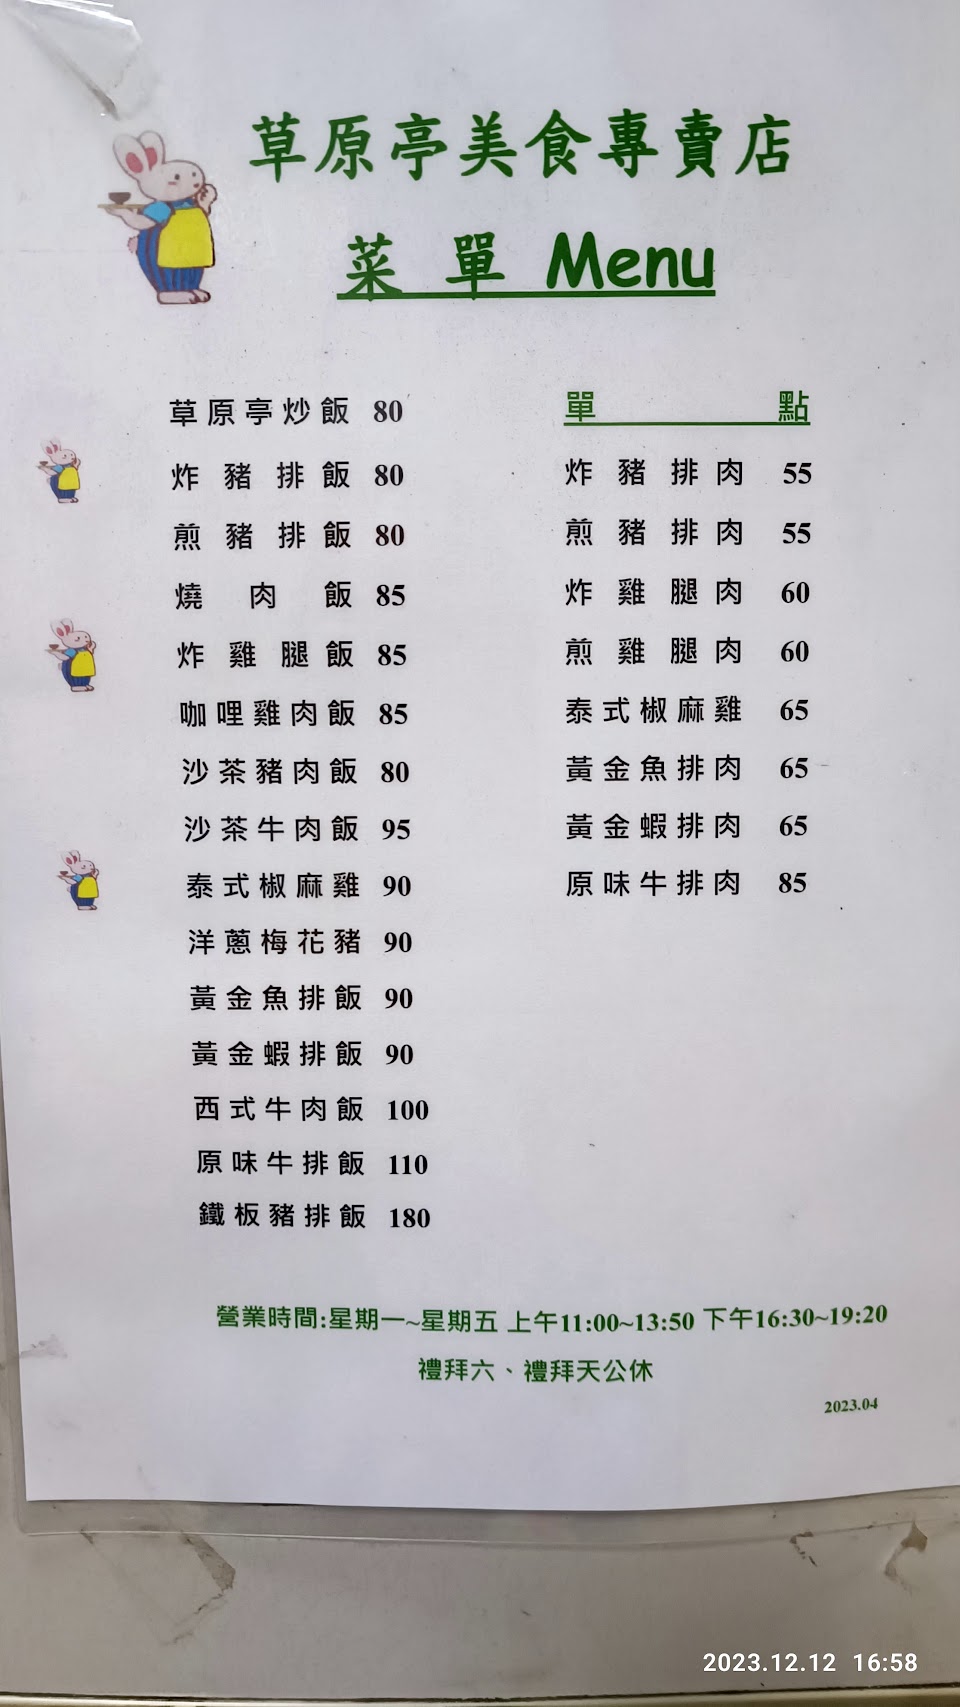 草原亭美食專賣店
菜 單 Menu
草原亭炒飯 80
炸豬排飯 80
煎豬排飯 80
燒肉飯 85
炸雞腿飯 85
咖哩雞肉飯 85
沙茶豬肉飯 80
沙茶牛肉飯 95
泰式椒麻雞 90
洋蔥梅花豬 90
黃金魚排飯 90
黃金蝦排飯 90
西式牛肉飯 100
原味牛排飯 110
鐵板豬排飯 180
單點
炸豬排肉 55
煎豬排肉 55
炸雞腿肉 60
煎雞腿肉 60
泰式椒麻雞 65
黃金魚排肉 65
黃金蝦排肉 65
原味牛排肉 85
營業時間:星期一~星期五 上午11:00~13:50 下午16:30~19:20
禮拜六、禮拜天公休
2023.04
2023.12.12 16:58